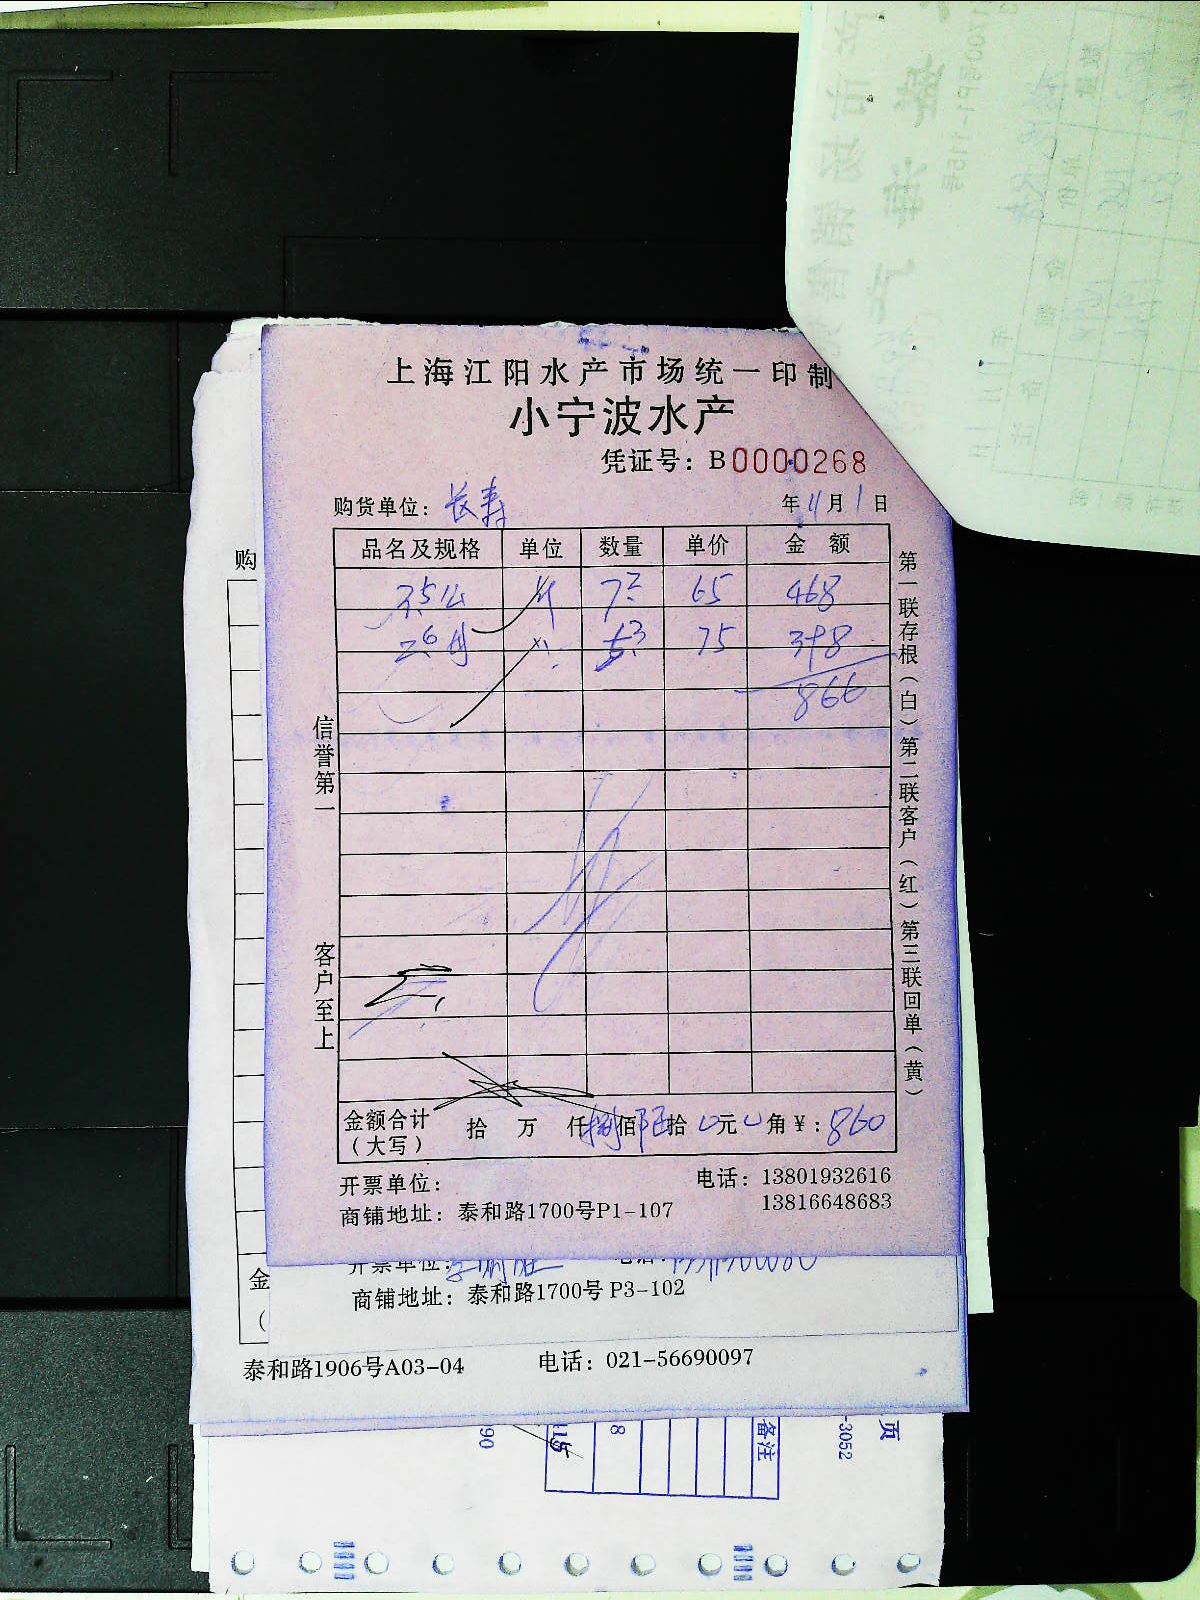 上海江阳水产市场统一印制
小宁波水产
凭证号：B0000268
购货单位：长寿
年 11月 1日
品名及规格 单位 数量 单价 金 额
3.5公 斤 7.2 65 468
2.6母 〃 5.3 75 398
866
信誉第一
客户至上
第一联存根（白）第二联客户（红）第三联回单（黄）
金额合计（大写） 拾 万 仟 捌佰 陆拾 0元 0角 ¥：860
开票单位：
电话：13801932616
13816648683
商铺地址：泰和路1700号P1-107
购
金
（
开票单位：
商铺地址：泰和路1700号 P3-102
泰和路1906号A03-04 电话：021-56690097
备注
8
115
90
-3052
页